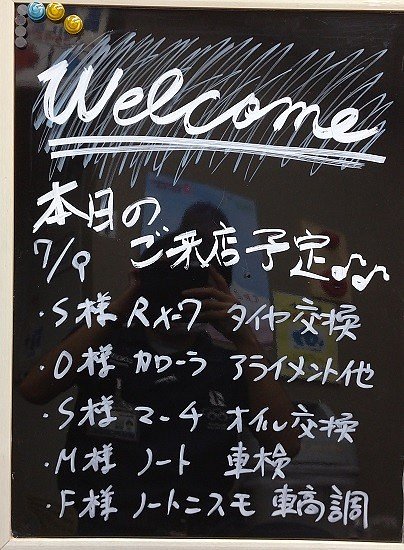 Welcome
本日の
7/9 ご来店予定♪♪
・S様 RX-7 タイヤ交換
・O様 カローラ アライメント他
・S様 マーチ オイル交換
・M様 ノート 車検
・F様 ノートニスモ 車高調